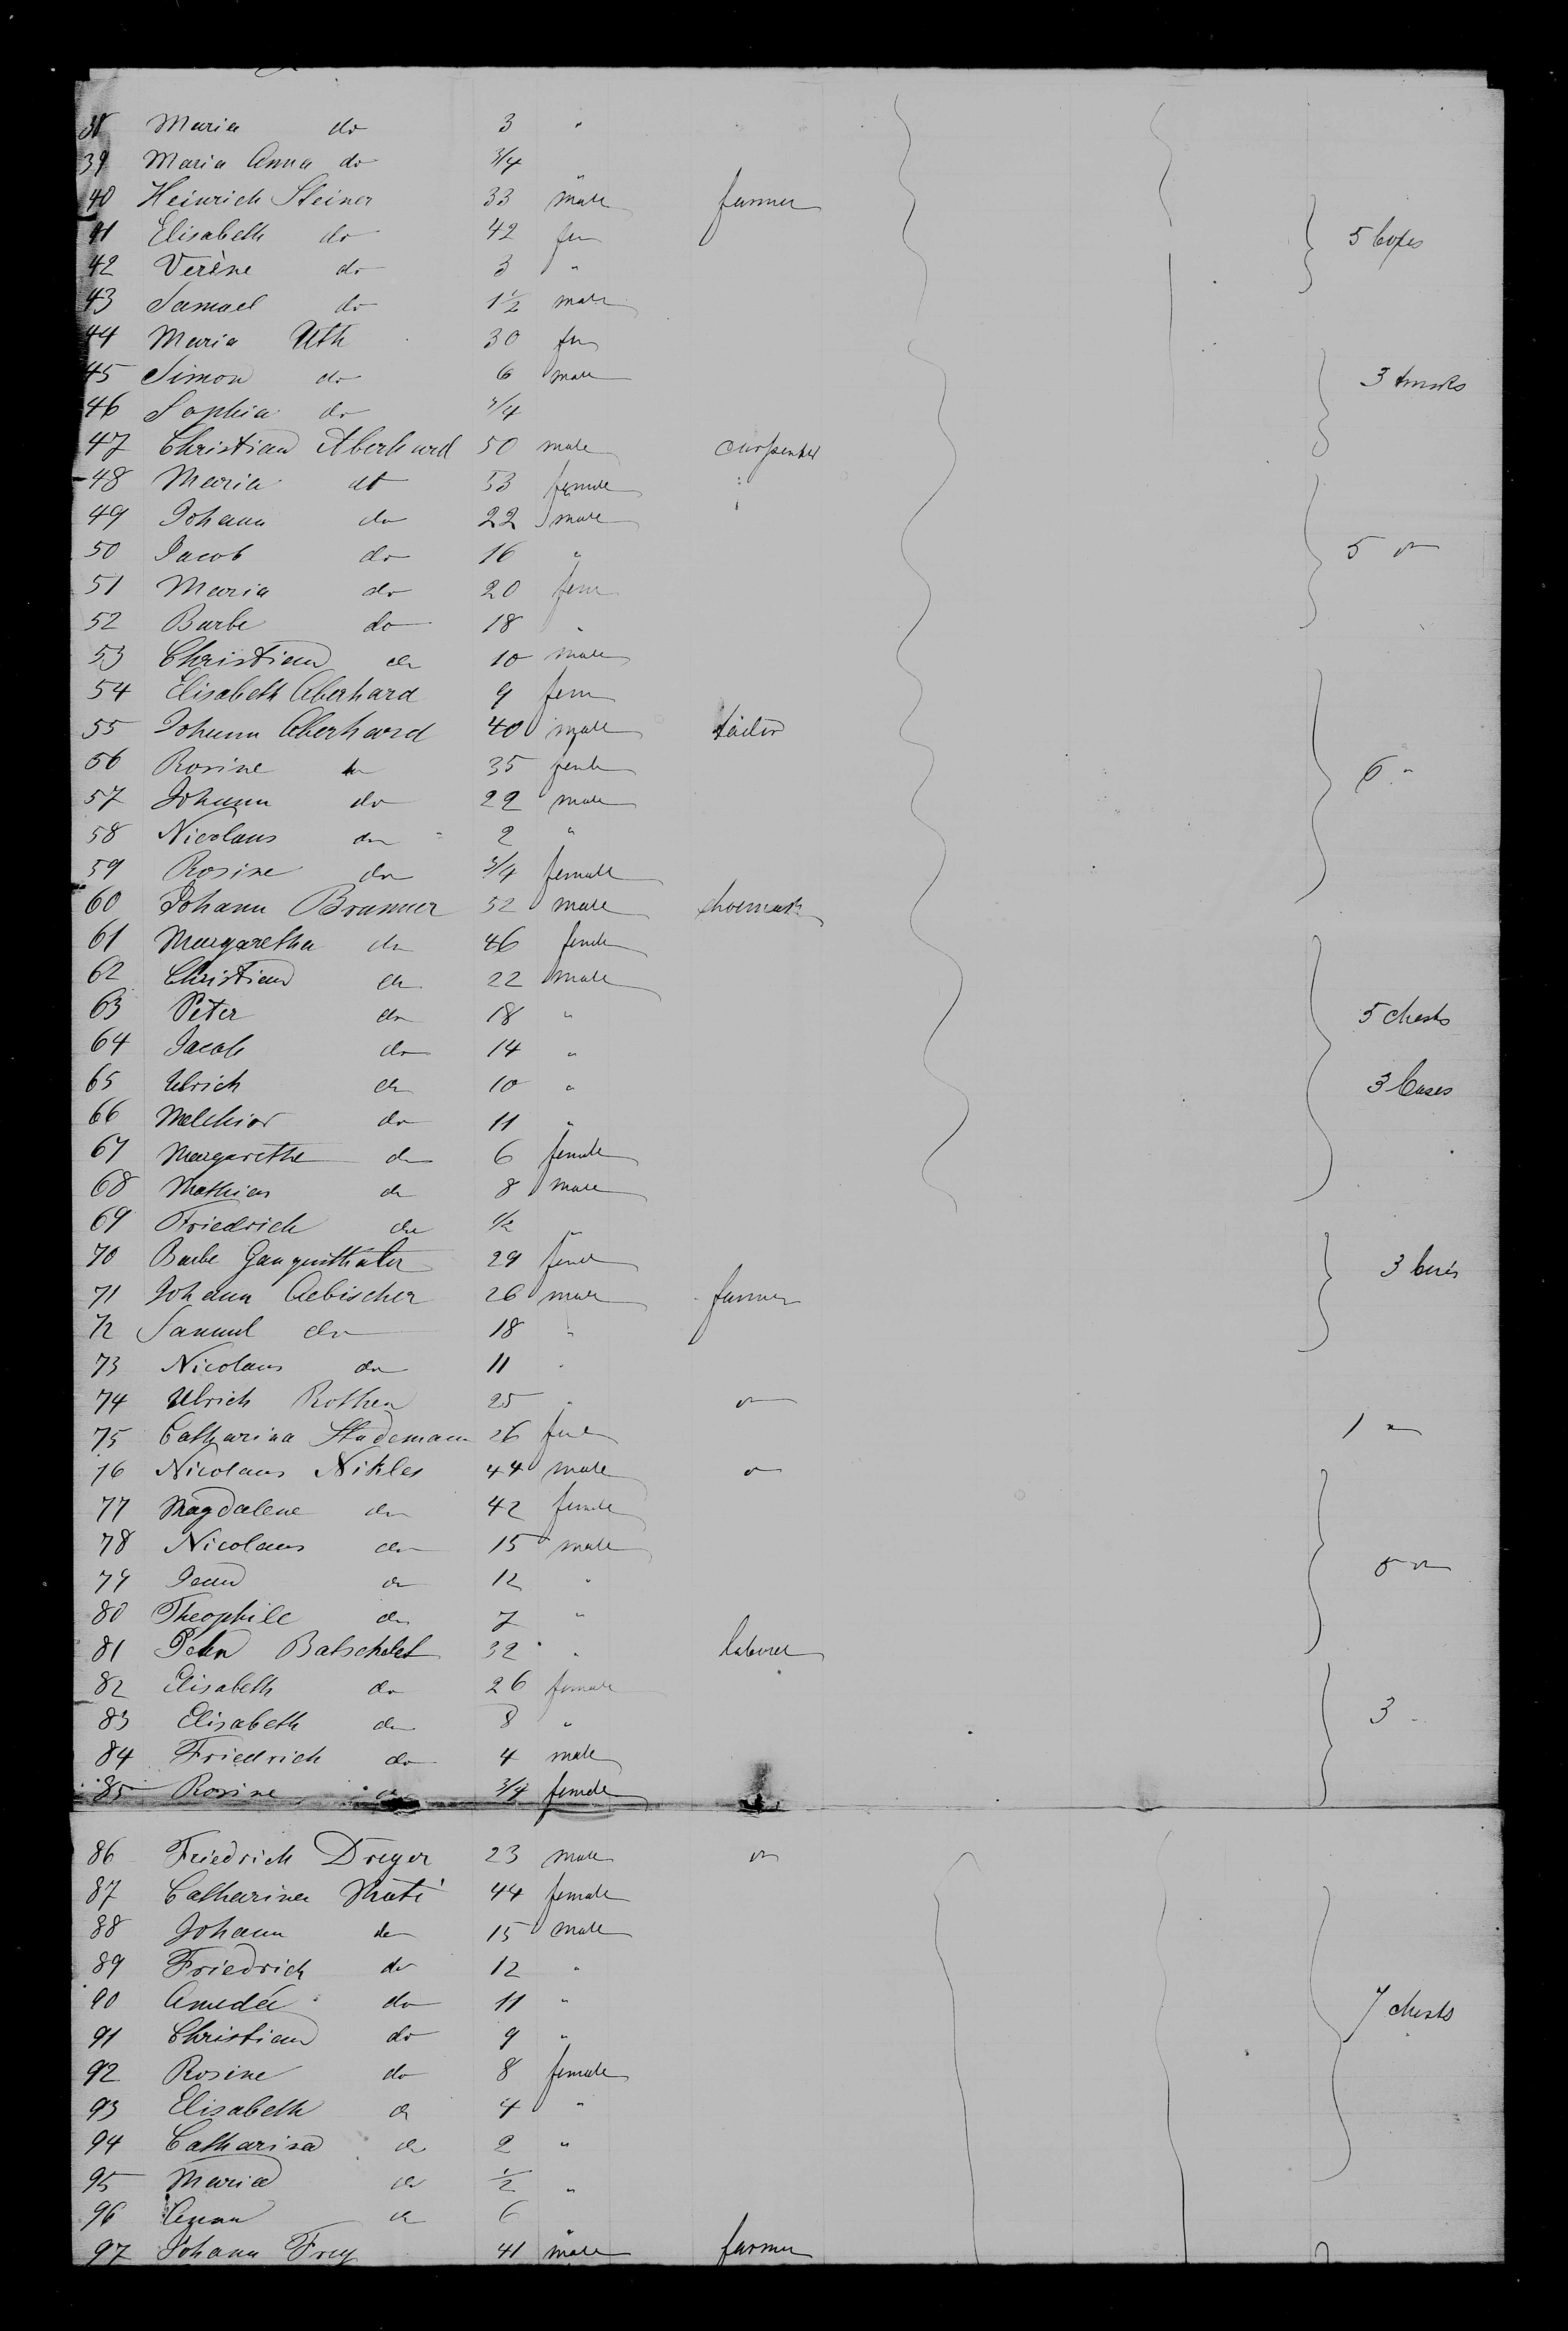 38 Maria do 3 "
39 Maria Anna do 3/4
40 Heinrich Steiner 33 male farmer
41 Elisabeth do 42 fem 5 boxes
42 Verène do 3 "
43 Samuel do 1 1/2 male
44 Maria Uth 30 fem
45 Simon do 6 male 3 trunks
46 Sophia do 3/4
47 Christian Aberhard 50 male carpenter
48 Maria do 53 female
49 Johann do 22 male
50 Jacob do 16 " 5 do
51 Maria do 20 fem
52 Barbe do 18 "
53 Christian do 10 male
54 Elisabeth Aberhard 9 fem
55 Johann Aberhard 40 male tailor
56 Rosine do 35 female 6 "
57 Johann do 22 male
58 Nicolaus do 2 "
59 Rosine do 3/4 female
60 Johann Brunner 52 male shoemak
61 Margaretha do 46 female
62 Christian do 22 male
63 Peter do 18 " 5 chests
64 Jacob do 14 "
65 Ulrich do 10 " 3 Cases
66 Melchior do 11 "
67 Margarethe do 6 female
68 Mathias do 8 male
69 Friedrich do 1/2 "
70 Barbe 29 female 3
71 Johann Aebischer 26 male farmer
72 Samuel do 18 "
73 Nicolaus do 11 "
74 Ulrich Rothen 25 " do
75 Catharina Stademann 26 fem 1 do
76 Nicolaus Nikles 44 male do
77 Magdalene do 42 female
78 Nicolaus do 15 male
79 Jean do 12 " do
80 Theophile do 7 "
81 Peter Batschelet 32 " laborer
82 Elisabeth do 26 female
83 Elisabeth do 8 " 3 "
84 Friedrich do 4 male
85 Rosine do 3/4 female
86 Friedrich Dreyer 23 male do
87 Catharina 44 female
88 Johann do 15 male
89 Friedrich do 12 "
90 Amedée do 11 " 7 chests
91 Christian do 9 "
92 Rosine do 8 female
93 Elisabeth do 4 "
94 Catharina do 2 "
95 Maria do 1/2 "
96 Anna do 6
97 Johann Frey 41 male farmer